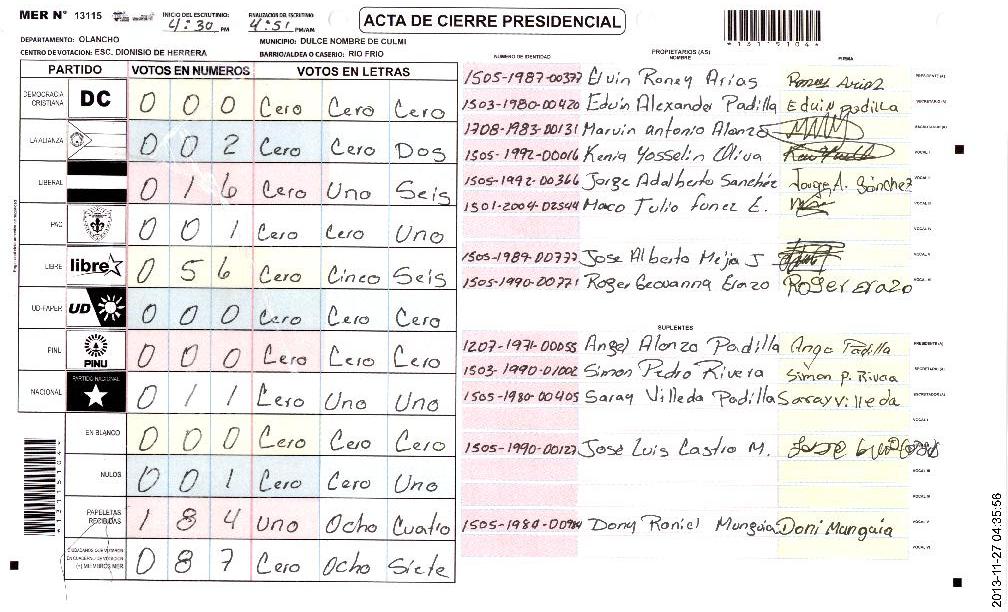 MER N° 13115 INICIO DEL ESCRUTINIO: 4:30 PM FINALIZACION DEL ESCRUTINIO: 4:51 PM/AM
ACTA DE CIERRE PRESIDENCIAL
*13115104*
DEPARTAMENTO: OLANCHO MUNICIPIO: DULCE NOMBRE DE CULMI
CENTRO DE VOTACION: ESC. DIONISIO DE HERRERA BARRIO/ALDEA O CASERIO: RIO FRIO
PARTIDO VOTOS EN NUMEROS VOTOS EN LETRAS
DEMOCRACIA CRISTIANA DC 0 0 0 Cero Cero Cero
LA ALIANZA 0 0 2 Cero Cero Dos
LIBERAL 0 1 6 Cero Uno Seis
PAC 0 0 1 Cero Cero Uno
LIBRE libre 0 5 6 Cero Cinco Seis
UD-FAPER UD 0 0 0 Cero Cero Cero
PINU PINU 0 0 0 Cero Cero Cero
NACIONAL PARTIDO NACIONAL 0 1 1 Cero Uno Uno
EN BLANCO 0 0 0 Cero Cero Cero
NULOS 0 0 1 Cero Cero Uno
PAPELETAS RECIBIDAS 1 8 4 Uno Ocho Cuatro
CIUDADANOS QUE VOTARON EN CUADERNO DE VOTACION (+) MIEMBROS MER 0 8 7 Cero Ocho Siete
PROPIETARIOS (AS)
NUMERO DE IDENTIDAD NOMBRE FIRMA
1505-1987-00377 Elvin Roney Arias Roney Arias PRESIDENTE (A)
1503-1980-00420 Eduin Alexander Padilla Eduin padilla SECRETARIO (A)
1708-1983-00131 Marvin antonio Alonzo ESCRUTADOR (A)
1505-1992-00016 Kenia Yosselin Oliva VOCAL I
1505-1992-00366 Jorge Adalberto Sanchéz Jorge A. Sánchez VOCAL II
1501-2004-02544 Marco Tulio funez E. VOCAL III
VOCAL IV
1505-1989-00777 Jose Alberto Mejia J VOCAL V
1505-1990-00771 Roger Geovanna Erazo Roger erazo VOCAL VI
SUPLENTES
1207-1971-00055 Angel Alonzo Padilla Ange Padilla PRESIDENTE (A)
1503-1990-01002 Simon Pedro Rivera Simon P. Rivera SECRETARIO (A)
1505-1980-00405 Saray Villeda Padilla Saray villeda ESCRUTADOR (A)
VOCAL I
1505-1990-00127 José Luis Castro M. VOCAL II
VOCAL III
VOCAL IV
1505-1980- Dony Roniel Munguia Doni Munguia VOCAL V
VOCAL VI
2013-11-27 04:35:56